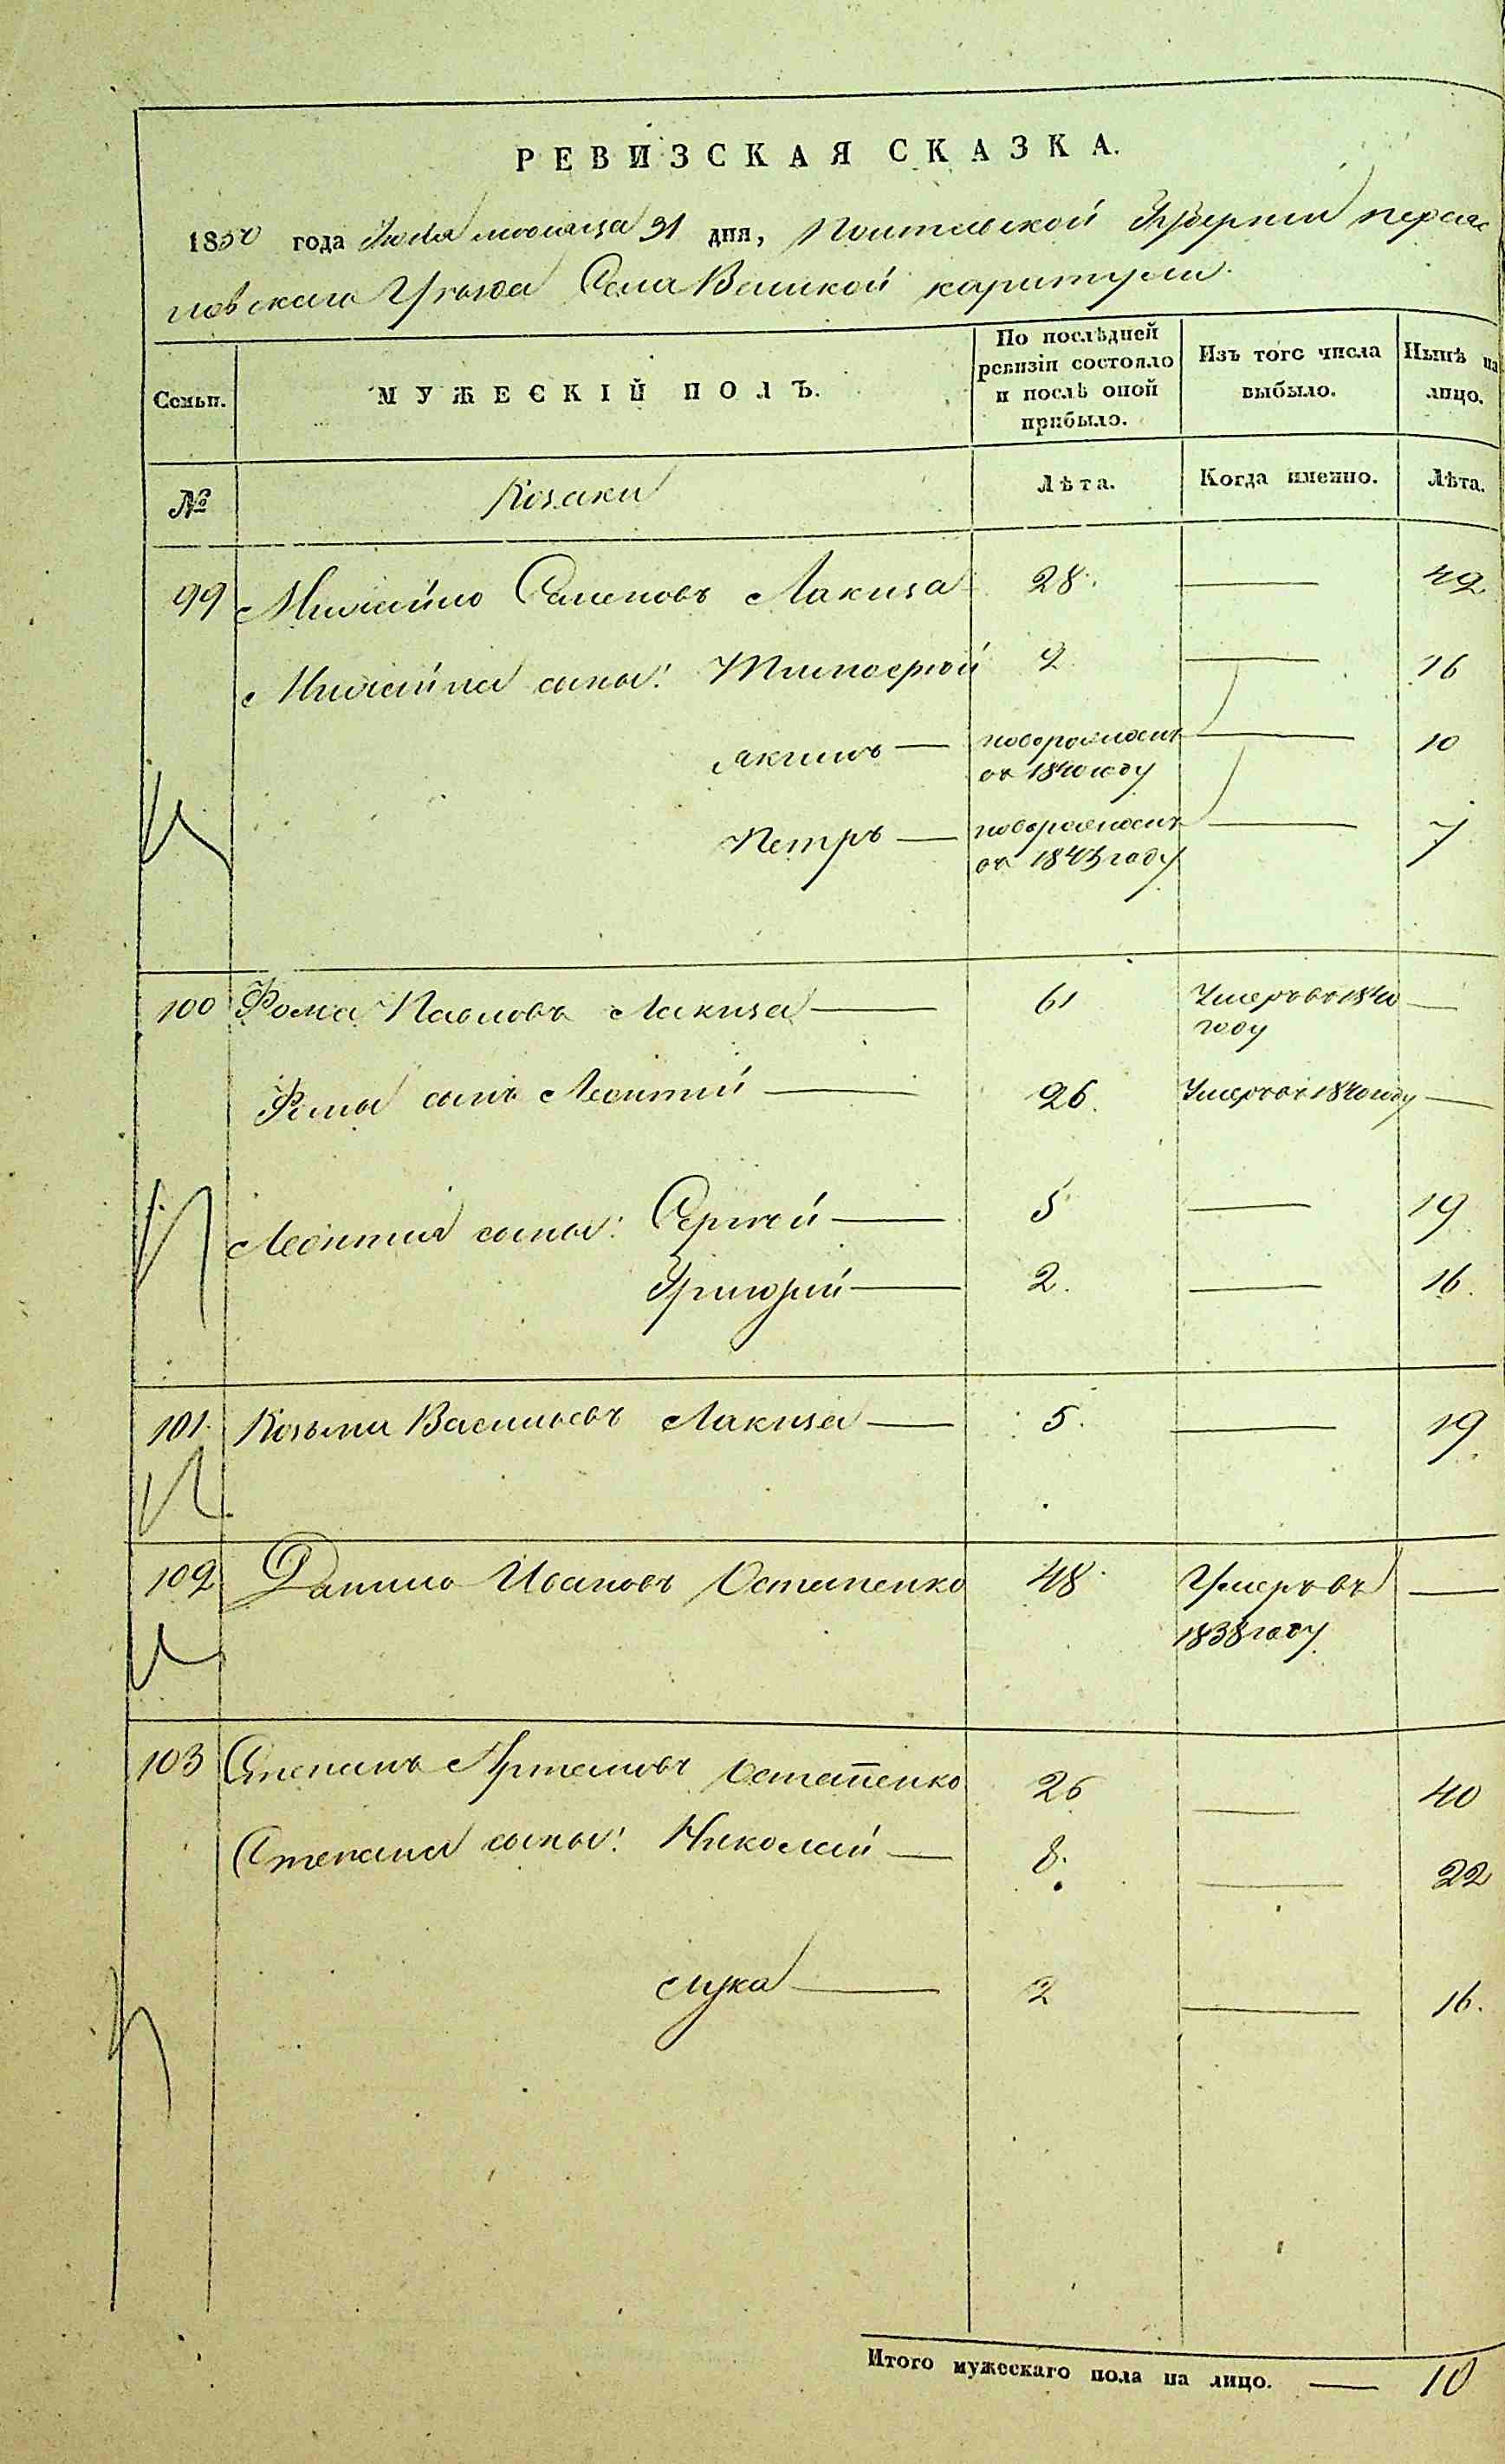 РЕВИЗСКАЯ СКАЗКА.
1850 года Июля месяца 31 дня, Полтавской Губернии переяс
лавскаго Уѣзда Села Великой каратули
Семьи. МУЖЕСКІЙ ПОЛЪ. По послѣдней ревизіи состояло и послѣ оной прибыло. Изъ того числа выбыло. Нынѣ на лицо.
№ Козаки Лѣта. Когда именно. Лѣта.
99 Михайло Семеновъ Лакиза 28. — 42
Михайла сыны: Тимофей 2 — 16
Якимъ — новорожденъ въ 1840 году — 10
Петръ — новорожденъ въ 1843 году — 7
100 Фома Павловъ Лакиза — 61 Умеръ въ 1840 году —
Фомы сынъ Леонтий — 26. Умеръ въ 1840 году —
Леонтия сыны: Сергей — 5 — 19
Григорий — 2. — 16.
101. Козьма Васильевъ Лакиза — 5. — 19
102 Данило Ивановъ Остапенко 48 Умеръ въ 1838 году —
103 Степанъ Артемовъ Остапенко 26 — 40
Степана сыны: Николай — 8. — 22
Лука — 2 — 16.
Итого мужескаго пола на лицо. — 10